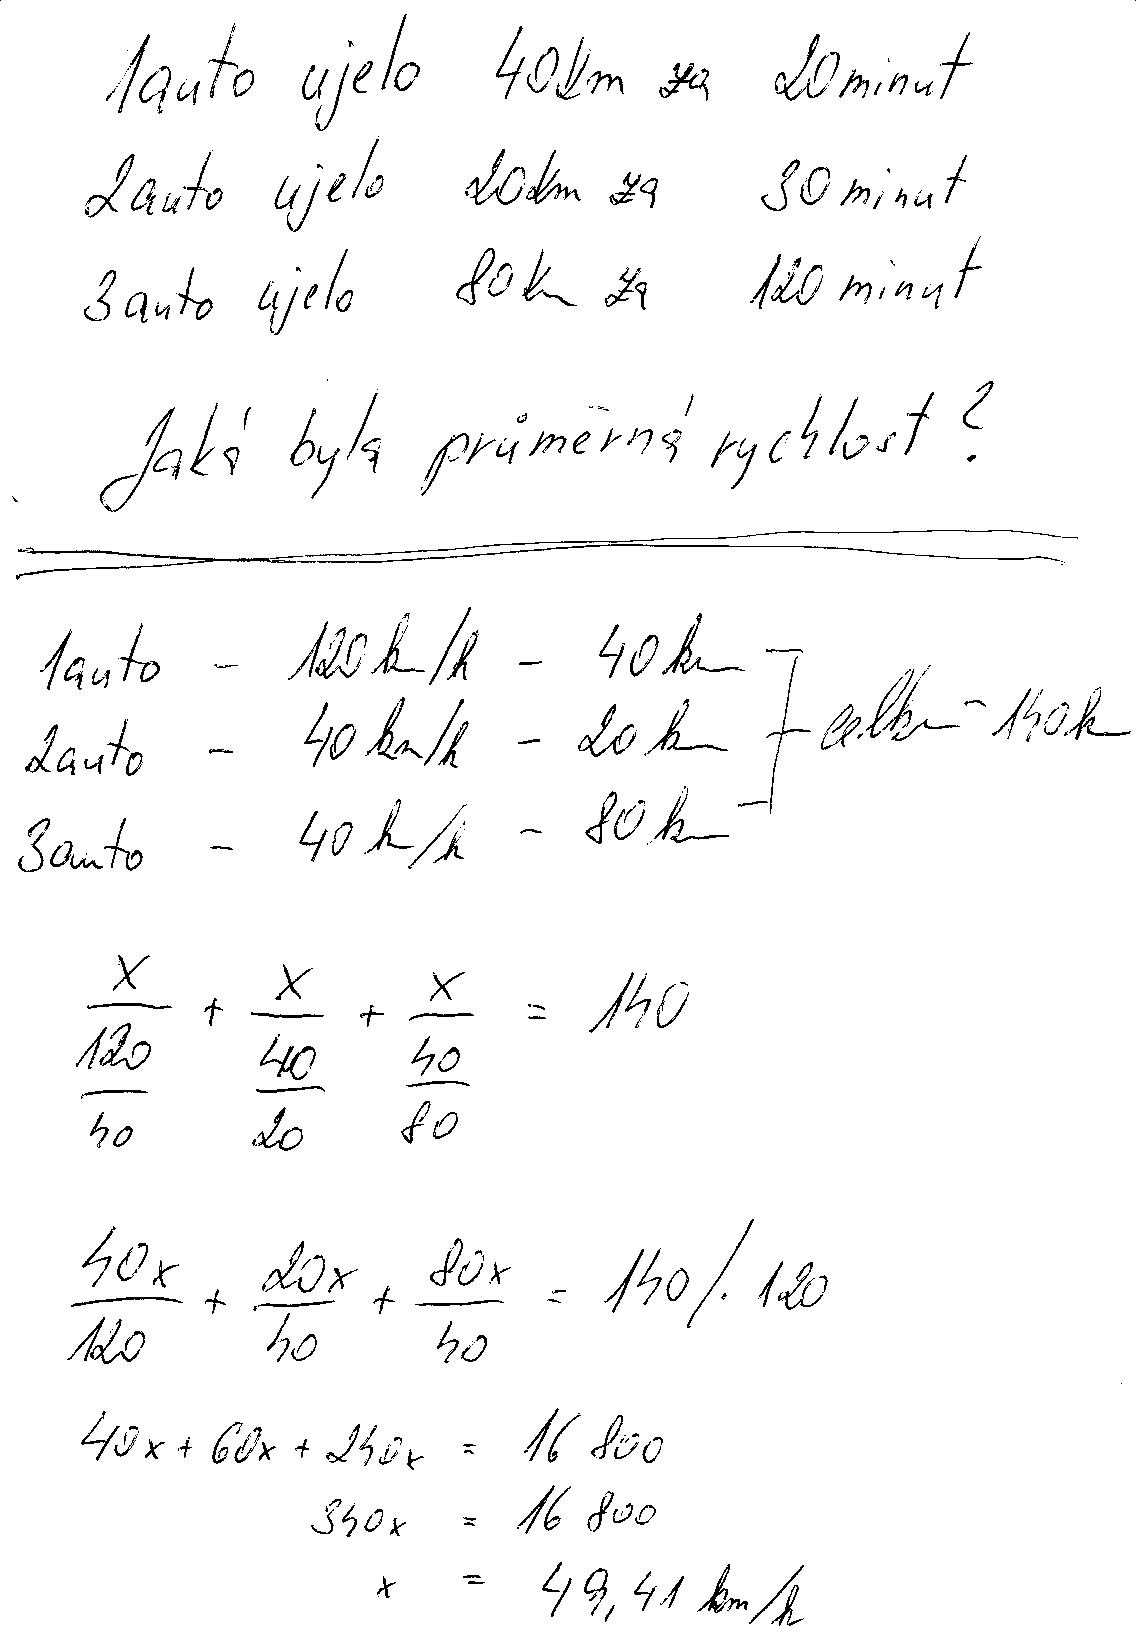 1auto ujelo 40km za 20minut
2auto ujelo 20km za 30minut
3auto ujelo 80km za 120minut
Jaká byla průměrná rychlost?
1auto - 120km/h - 40km
2auto - 40km/h - 20km
3auto - 40k/h - 80km
celkem - 140k
x/(120/40) + x/(40/20) + x/(40/80) = 140
40x/120 + 20x/40 + 80x/40 = 140 /. 120
40x + 60x + 240x = 16 800
340x = 16 800
x = 49,41 km/h